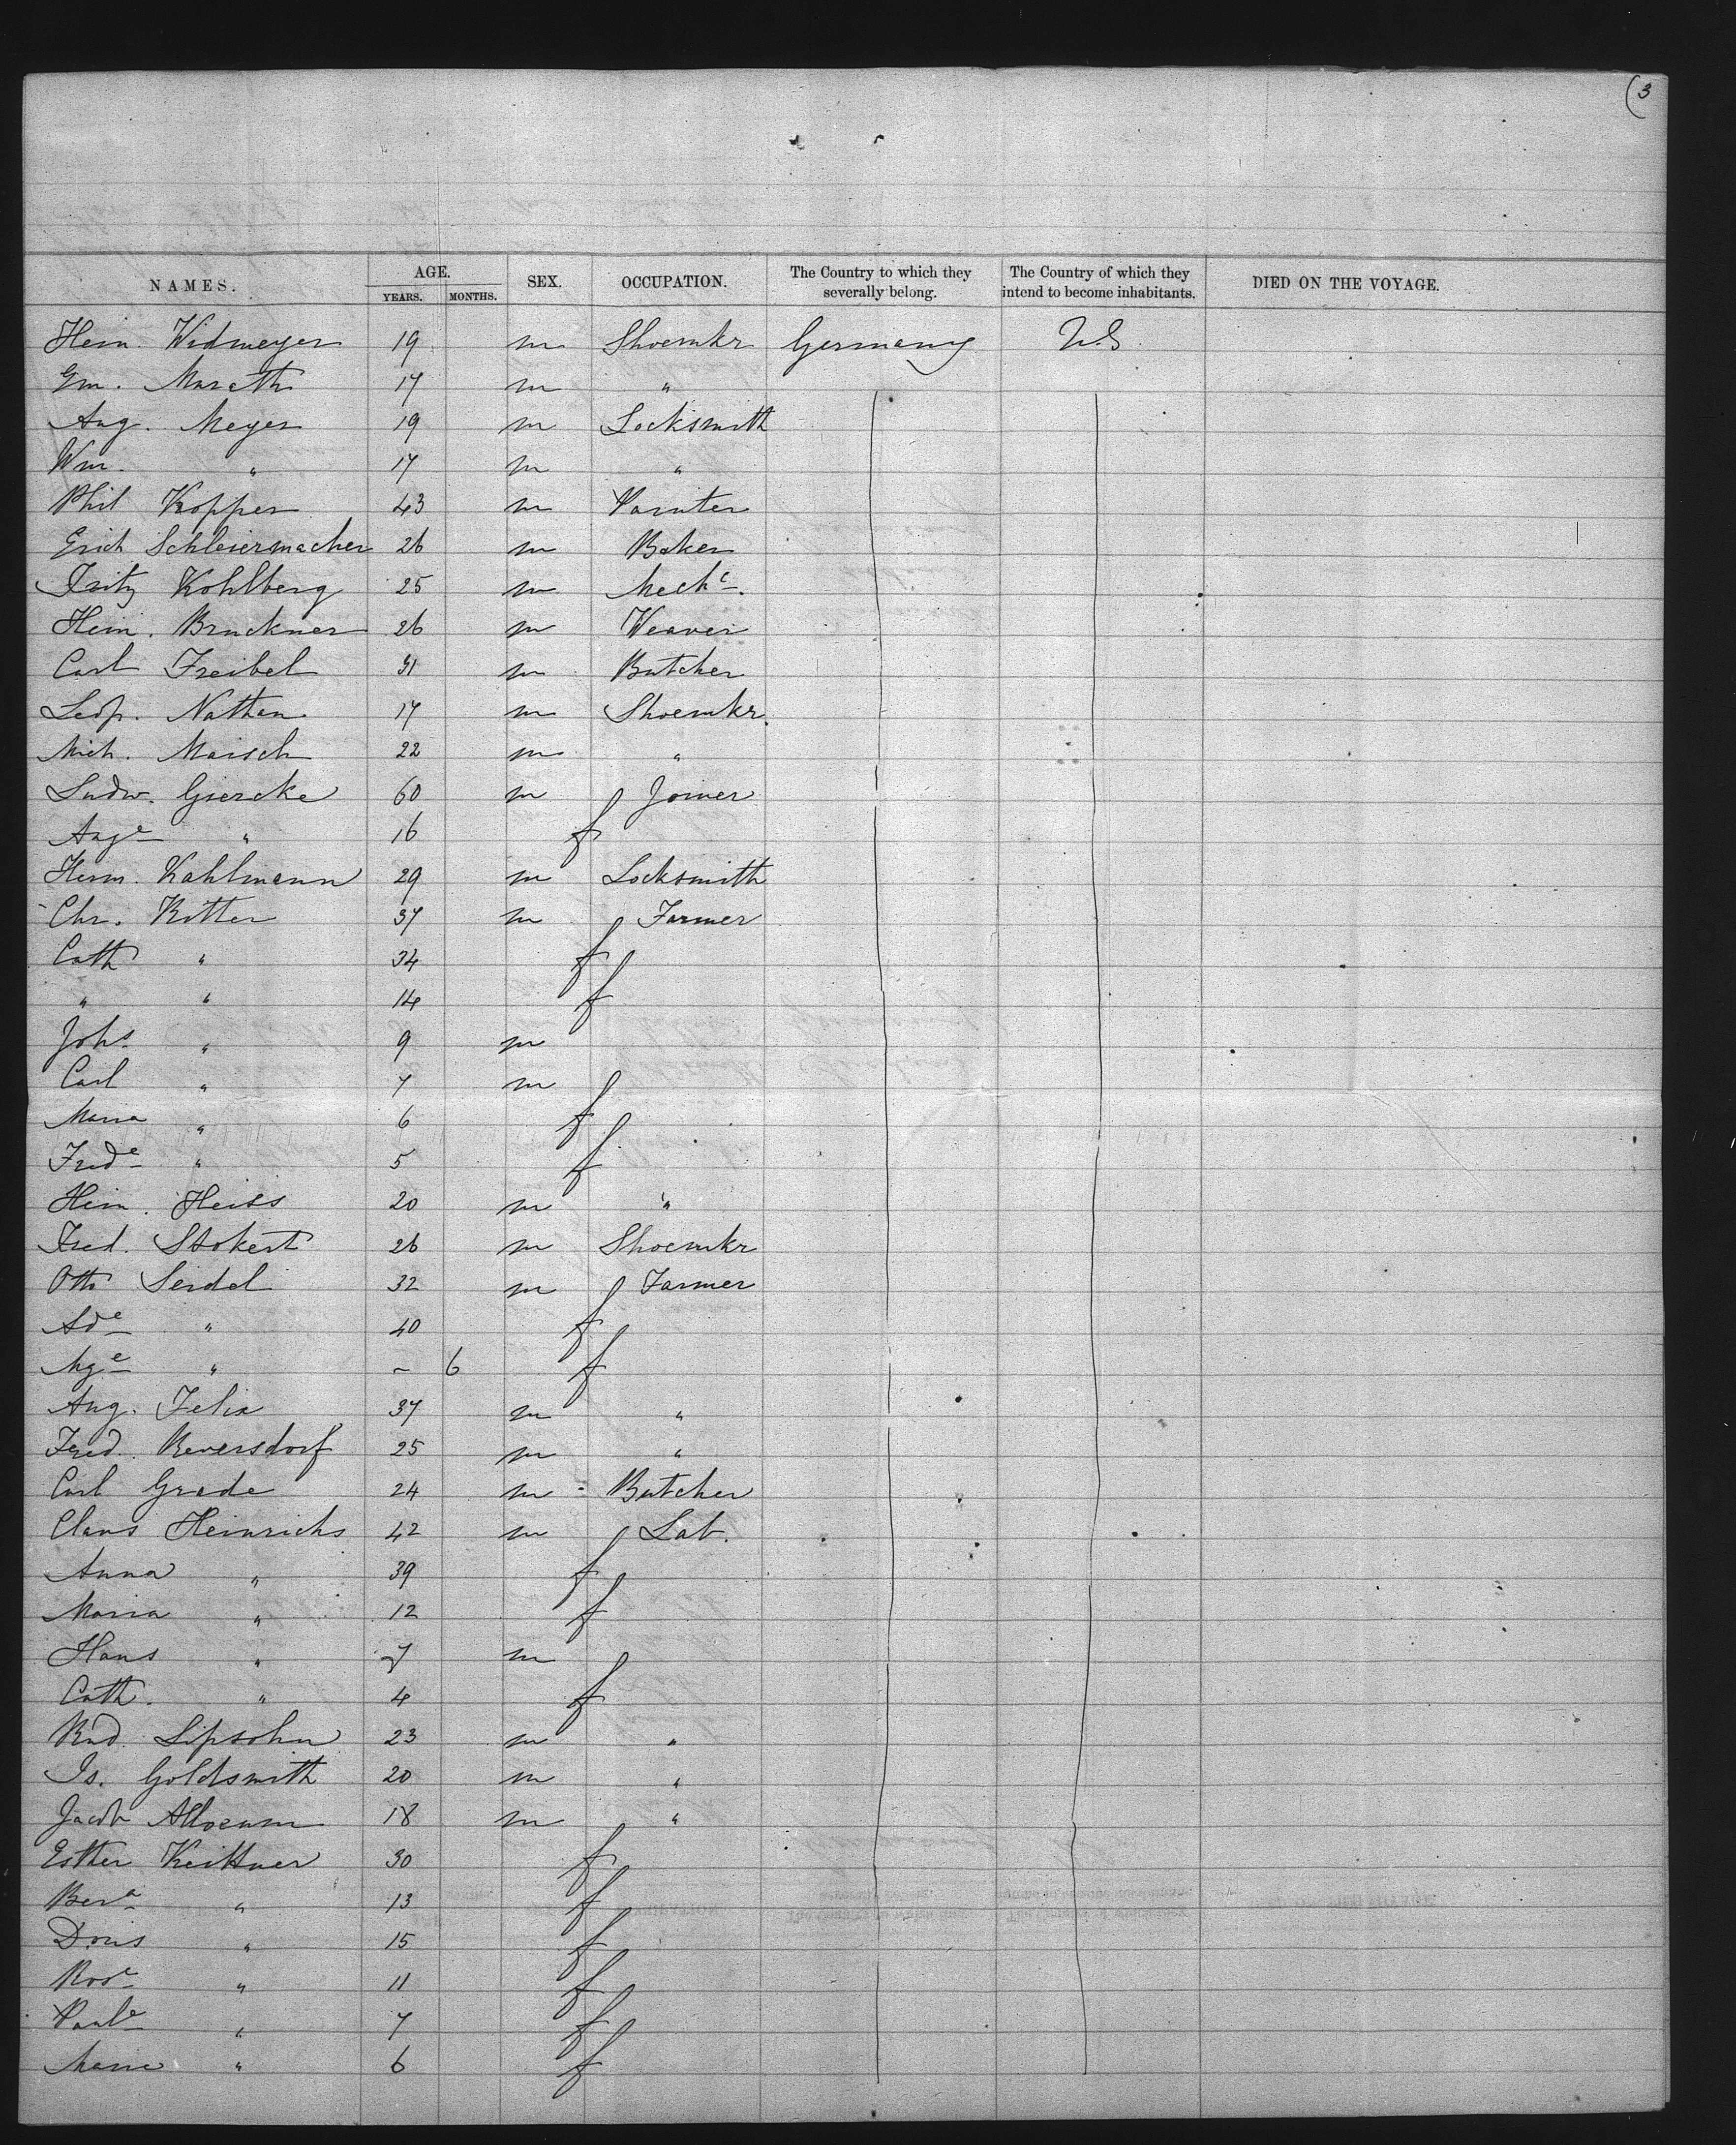 (3
NAMES. AGE. YEARS. MONTHS. SEX. OCCUPATION. The Country to which they severally belong. The Country of which they intend to become inhabitants. DIED ON THE VOYAGE.
Hein. Widmeyer 19 m Shoemkr Germany U.S.
Em. Marath 17 m "
Aug. Meyer 19 m Locksmith
Wm. " 17 m "
Phil Kopper 43 m Painter
Erich Schleiermacher 26 m Baker
Fritz Kohlberg 25 m Mechc.
Hein. Bruckner 26 m Weaver
Carl Freibel 31 m Butcher
Leop. Nathan 17 m Shoemkr.
Mich. Maisch 22 m "
Ludw. Giercke 60 m Joiner
Auge " 16 f
Herm. Kahlmann 29 m Locksmith
Chr. Ritter 37 m Farmer
Cath " 34 f
" " 14 f
Johs " 9 m
Carl " 7 m
Maria " 6 f
Frede " 5 f
Hein. Heiss 20 m "
Fred. Stokert 26 m Shoemkr
Otto Seidel 32 m Farmer
Ade " 40 f
Age " - 6 f
Aug. Felix 37 m "
Fred. Reversdorf 25 m "
Carl Grade 24 m Butcher
Claus Heinrichs 42 m Lab.
Anna " 39 f
Maria " 12 f
Hans " 7 m
Cath. " 4 f
Rud. Lipsohn 23 m "
Is. Goldsmith 20 m "
Jacob 18 m "
Esther Keittner 30 f
Bera " 13 f
Doris " 15 f
Rosa " 11 f
Paule " 7 f
Marie " 6 f